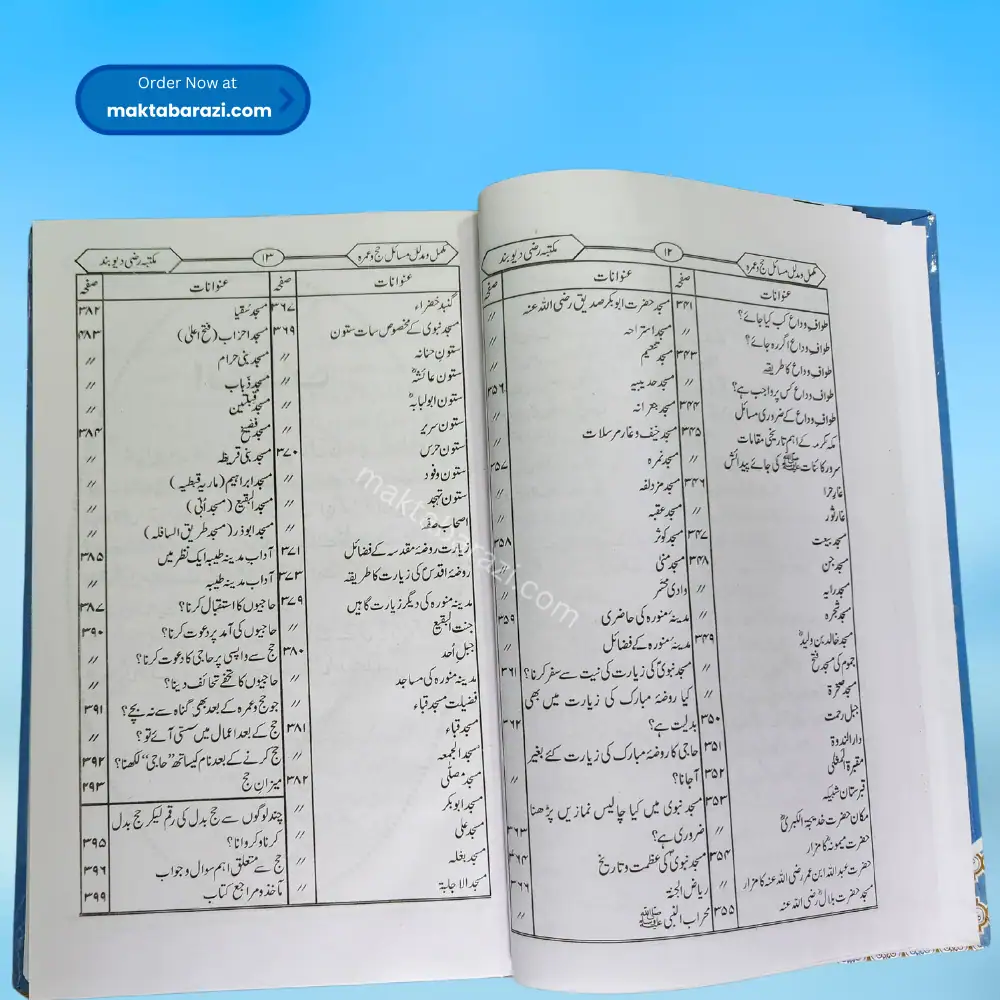 Order Now at
maktabarazi.com
مکمل و مدلل مسائل حج و عمرہ ۱۲ مکتبہ رضی دیوبند
عنوانات صفحہ
طواف وداع کب کیا جائے؟ ۳۴۱
طواف وداع اگر رہ جائے؟ 〃
طواف وداع کا طریقہ ۳۴۳
طواف وداع کس پر واجب ہے؟ 〃
طواف وداع کے ضروری مسائل ۳۴۴
مکہ مکرمہ کے اہم تاریخی مقامات ۳۴۵
سرور کائنات ﷺ کی جائے پیدائش 〃
غار حرا ۳۴۶
غار ثور 〃
مسجد بیعت ۳۴۷
مسجد جن ۳۴۸
مسجد رایہ 〃
مسجد شجرہ 〃
مسجد خالد بن ولیدؓ ۳۴۹
جموم کی مسجد فتح 〃
مسجد صخرۃ 〃
جبل رحمت ۳۵۰
دار الندوۃ ۳۵۱
مقبرۃ المعلیٰ ۳۵۲
قبرستان شبیکہ ۳۵۳
مکان حضرت خدیجۃ الکبریٰؓ 〃
حضرت میمونہؓ کا مزار ۳۵۴
حضرت عبداللہ ابن عمر رضی اللہ عنہ کا مزار 〃
مسجد حضرت بلال رضی اللہ عنہ ۳۵۵
عنوانات صفحہ
مسجد حضرت ابوبکر صدیق رضی اللہ عنہ 〃
مسجد استراحہ 〃
مسجد تنعیم 〃
مسجد حدیبیہ ۳۵۶
مسجد جعرانہ 〃
مسجد خیف و غار مرسلات 〃
مسجد نمرہ ۳۵۷
مسجد مزدلفہ 〃
مسجد عقبہ 〃
مسجد کوثر ۳۵۸
مسجد منیٰ 〃
وادی محسر 〃
مدینہ منورہ کی حاضری ۳۵۹
مدینہ منورہ کے فضائل 〃
مسجد نبویؐ کی زیارت کی نیت سے سفر کرنا؟ ۳۶۱
کیا روضۂ مبارک کی زیارت میں بھی
بدلیت ہے؟ ۳۶۲
حاجی کا روضۂ مبارک کی زیارت کئے بغیر
آجانا؟ 〃
مسجد نبوی میں کیا چالیس نمازیں پڑھنا
ضروری ہے؟ ۳۶۳
مسجد نبویؐ کی عظمت و تاریخ ۳۶۴
ریاض الجنۃ ۳۶۶
محراب النبی ﷺ 〃
مکمل و مدلل مسائل حج و عمرہ ۱۳ مکتبہ رضی دیوبند
عنوانات صفحہ
گنبد خضراء ۳۶۷
مسجد نبوی کے مخصوص سات ستون ۳۶۹
ستون حنانہ 〃
ستون عائشہؓ 〃
ستون ابولبابہؓ 〃
ستون سریر 〃
ستون حرس ۳۷۰
ستون وفود 〃
ستون تہجد 〃
اصحاب صفہ 〃
زیارت روضۂ مقدسہ کے فضائل ۳۷۱
روضۂ اقدس کی زیارت کا طریقہ ۳۷۳
مدینہ منورہ کی دیگر زیارت گاہیں ۳۷۹
جنت البقیع 〃
جبل اُحد ۳۸۰
مدینہ منورہ کی مساجد 〃
فضیلت مسجد قباء 〃
مسجد قباء ۳۸۱
مسجد الجمعہ 〃
مسجد مصلّٰی ۳۸۲
مسجد ابوبکر 〃
مسجد علی 〃
مسجد بغلہ 〃
مسجد الاجابۃ 〃
عنوانات صفحہ
مسجد سُقیا ۳۸۲
مسجد احزاب (فتح اعلیٰ) ۳۸۳
مسجد بنی حرام 〃
مسجد ذباب 〃
مسجد قبلتین 〃
مسجد فضیخ ۳۸۴
مسجد بنی قریظہ 〃
مسجد ابراہیم (ماریہ قبطیہ) 〃
مسجد البقیع (مسجد اُبی) 〃
مسجد ابوذر (مسجد طریق السافلہ) 〃
آداب مدینہ طیبہ ایک نظر میں ۳۸۵
آداب مدینہ طیبہ 〃
حاجیوں کا استقبال کرنا؟ ۳۸۷
حاجیوں کی آمد پر دعوت کرنا؟ ۳۹۰
حج سے واپسی پر حاجی کا دعوت کرنا؟ 〃
حاجیوں کا تحفے تحائف دینا؟ 〃
جو حج و عمرہ کے بعد بھی گناہ سے نہ بچے؟ ۳۹۱
حج کے بعد اعمال میں سستی آئے تو؟ 〃
حج کرنے کے بعد نام کیساتھ ”حاجی“ لکھنا؟ ۳۹۲
میزان حج ۳۹۳
چند لوگوں سے حج بدل کی رقم لیکر حج بدل
کرنا و کروانا؟ ۳۹۵
حج سے متعلق اہم سوال و جواب ۳۹۶
مآخذ و مراجع کتاب ۳۹۹
maktabarazi.com